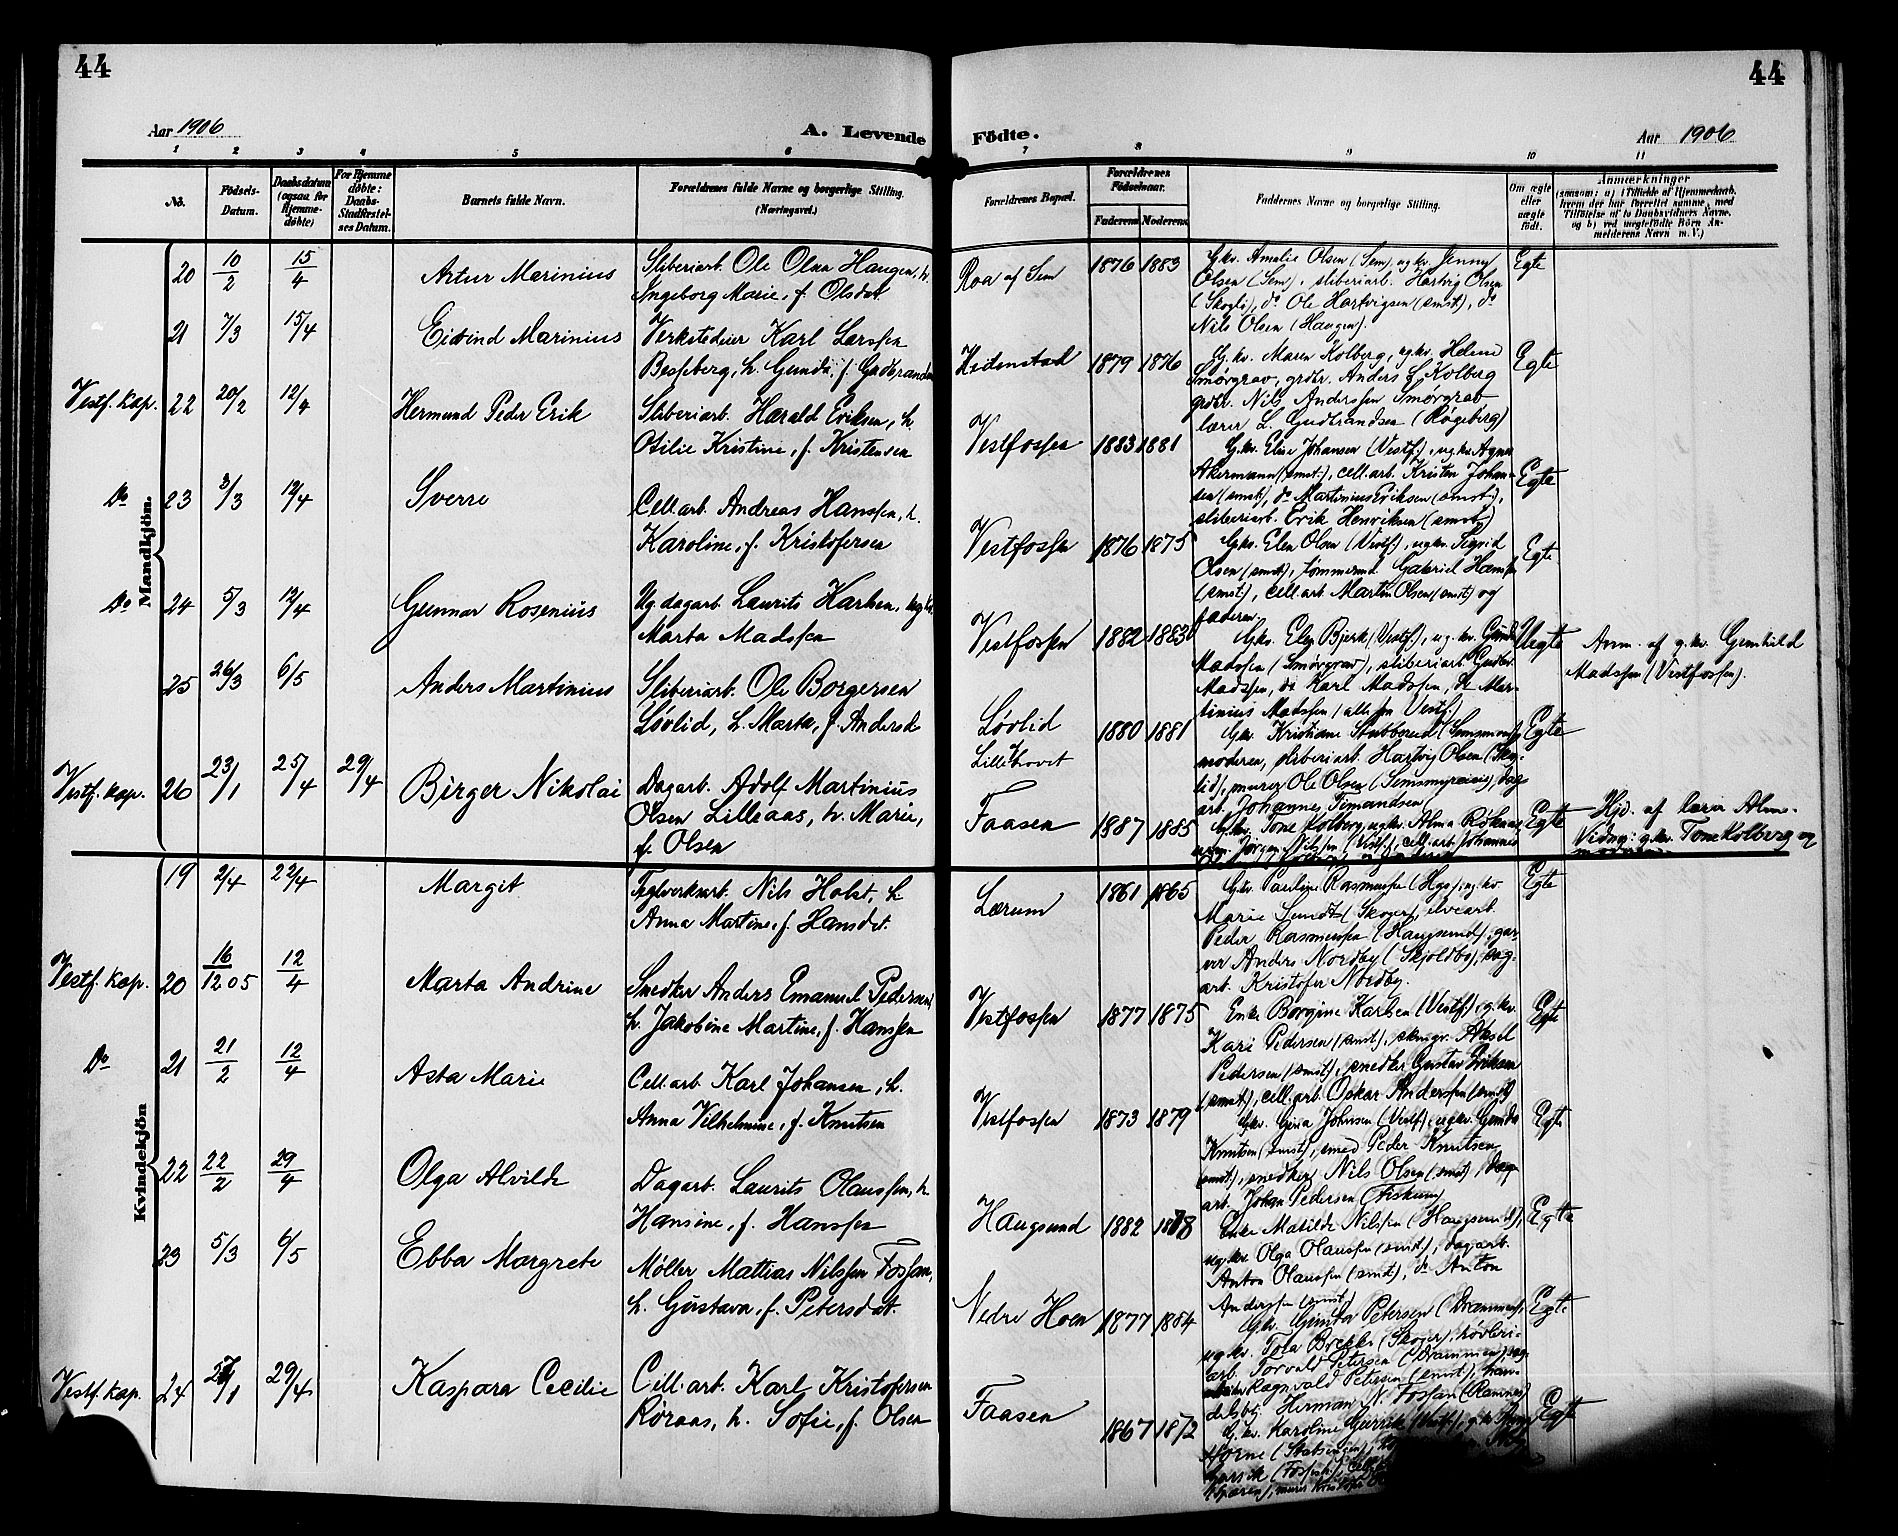 44
44
Aar 1906
A. Levende
Födte.
Aar 1906
1 2 3 4 5 6 7 8 9 10 11
No.
Födsels-
Datum.
Daabsdatum
(ogsaa for
Hjemme-
døbte)
For Hjemme
døbte:
Daabs-
Stadfæstel-
ses Datum.
Barnets fulde Navn.
Forældrenes fulde Navne og borgerlige Stilling.
(Næringsvei.)
Forældrenes Bopæl.
Forældrenes
Födselsaar.
Faderens Moderens
Faddernes Navne og borgerlige Stilling.
Om ægte
eller
uægte
født.
Anmærkninger
Mandkjön.
20 10/2 15/4 Artur Marinius
Sliberiarb. Ole Olsen Haugen, h.
Ingeborg Marie, f. Olsdat.
Roa af Sem 1876 1883
Gkv. Amalie Olsen (Sem), ugkv. Jenny
Olsen (Sem), sliberiarb. Hartvig Olsen
(Skogli), do Ole Hartvigsen (smst), do
Nils Olsen (Haugen).
Egte
21 7/3 15/4 Eivind Marinius
Verkstedeier Karl Larssen
Besseberg, h. Gunda, f. Gudbrandsen
Hedenstad 1879 1876
Gkv. Maren Kolberg, ugkv. Helene
Smørgrav, grdbr. Anders L. Kolberg
grdbr. Nils Anderssen Smørgrav
lærer L. Gudbrandsen (Røgeberg)
Egte
Vestf. kap. 22 20/2 12/4 Hermund Peder Erik
Sliberiarb. Harald Eriksen, h.
Otilie Kristine, f. Kristensen
Vestfossen 1883 1881
Gkv. Elise Johansen (Vestf.), ugkv. Agnes
Akermann (smst), cell.arb. Kristen Johan-
sen (smst), do Martinius Eriksen (smst),
sliberiarb. Erik Henriksen (smst)
Egte
Do 23 3/3 12/4 Sverre
Cell.arb. Andreas Hanssen, h.
Karoline, f. Kristofersen
Vestfossen 1876 1875
Gkv. Elen Olsen (Vestf), ugkv. Sigrid
Olsen (smst), tømmermd. Gabriel Hanssen
(smst), cell.arb. Martin Olsen (smst) og
faderen.
Egte
Do 24 5/3 12/4 Gunnar Rosenius
Ug. dagarb. Laurits Karlsen, ugkv.
Marta Madssen
Vestfossen 1882 1883
Gkv. Elen Bjerk (Vestf), ugkv. Gunda
Madssen (Smørgrav), sliberiarb. Gudbr.
Madssen, do Karl Madssen, do Mar-
tinius Madssen (alle fra Vestf.)
Uegte
Anm. af g.kv. Gunhild
Madssen (Vestfossen).
25 26/3 6/5 Anders Martinius
Sliberiarb. Ole Borgersen
Løvlid, h. Marta, f. Andersd.
Løvlid
1880 1881
Gkv. Kristiane Stubberud
moderen, sliberiarb. Hartvig Olsen
murer Ole Olsen
arb. Johannes Timandsen
Egte
Vestf. kap. 26 23/1 25/4 29/4 Birger Nikolai
Dagarb. Adolf Martinius
Olsen Lilleaas, h. Marie,
f. Olsen
Faasen 1887 1885
Gkv. Tone Kolberg, ugkv. Alma Røknæs,
Jørgen Nilssen (Vestf.), cell.arb. Johannes
Egte
Hjd. af lærer Alm.
Vidner: g.kv. Tone Kolberg og
moderen.
Kvindekjön
19 2/4 22/4 Margit
Teglverksarb. Nils Holst, h.
Anna Martine, f. Hansdt.
Lærum 1861 1865
Gkv. Pauline Rasmussen (Hgs), ugkv.
Marie Lundt (Skoger), elvearb.
Peder Rasmussen (Haugsund), gar-
ver Anders Nordby (Skjoldby), dag-
arb. Kristofer Nordby.
Egte
Vestf. kap. 20 16/12 05 12/4 Marta Andrine
Snedker Anders Emanuel Pedersen,
h. Jakobine Martine, f. Hanssen
Vestfossen 1877 1875
Enke Borgine Karlsen (Vestf), g.kv.
Kari Pedersen (smst), Aksel
Pedersen (smst), snedker Gustav Eriksen
(smst), cell.arb. Oskar Anderssen (smst)
Egte
Do 21 21/2 12/4 Asta Marie
Cell.arb. Karl Johansen, h.
Anna Vilhelmine, f. Knutsen
Vestfossen 1873 1879
Gkv. Gina Johnsen (Vestf), ugkv. Gunda
Knutsen (smst), smed Peder Knutsen
(smst), snedker Nils Olsen (smst), dag-
arb. Johan Pedersen (Fiskum)
Egte
22 22/2 29/4 Olga Alvilde
Dagarb. Laurits Olaussen, h.
Hansine, f. Hanssen
Haugsund 1882 1878
Enke Matilde Nilssen (Haugsund),
ugkv. Olga Olaussen (smst), dagarb.
Anton Olaussen (smst), do Anton
Anderssen (smst)
Egte
23 5/3 6/5 Ebba Margrete
Møller Mattias Nilssen Fossan,
h. Gustava, f. Petersdat.
Nedre Hoen 1877 1884
Petersen (Drammen),
ugkv. Tora Brekke (Skoger), høvleri-
arb. Torvald Petersen (Drammen), dag-
Ragnvald Petersen (smst), han-
delsbtj. Herman N. Fossan (Ramnes)
Egte
Vestf. kap. 24 27/1 29/4 Kaspara Cecilie
Cell.arb. Karl Kristofersen
Røraas, h. Sofie, f. Olsen
Faasen 1867 1872
Gkv. Karoline
Egte